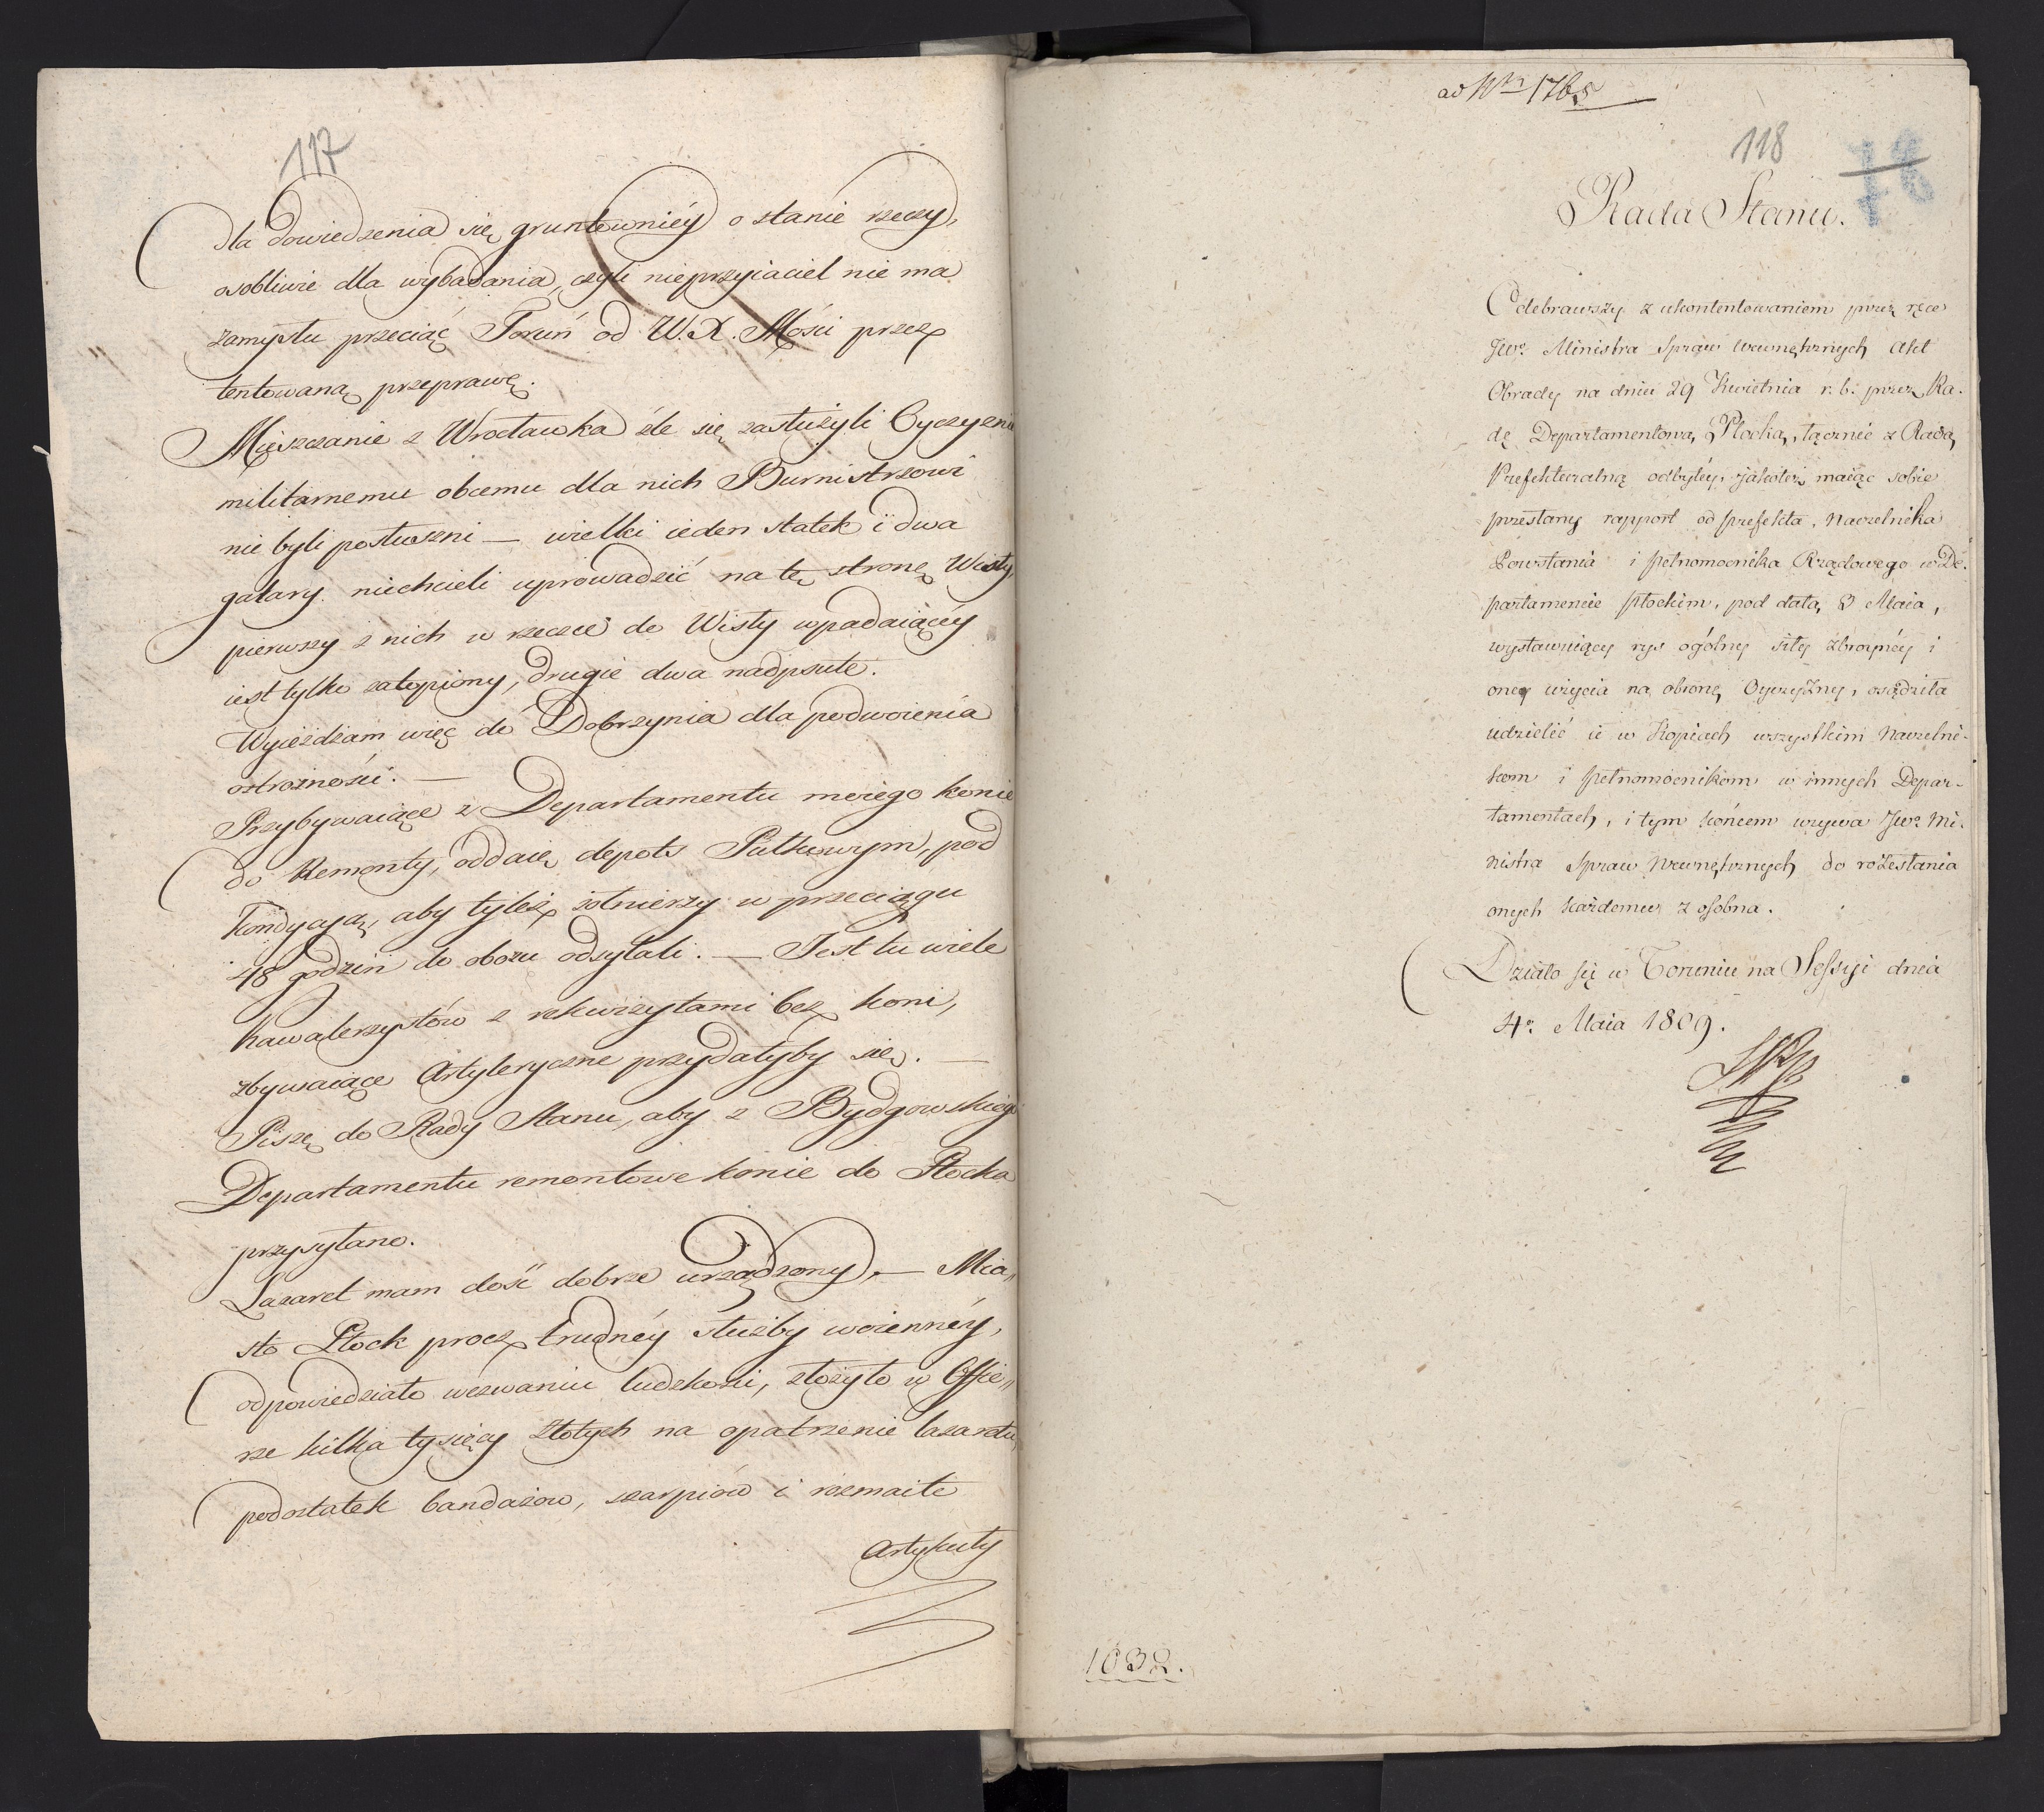 117
dla dowiedzenia się gruntowniéy o stanie rzeczy,
osobliwie dla wybadania, czyli nieprzyiaciel nie ma
zamysłu przeciąć Toruń od W. X. Mości przez
tentowaną przeprawę.
Mieszczanie z Wrocławka źle się zasłużyli Oyczyznie
militarnemu obcemu dla nich Burmistrzowi
nie byli posłuszni — wielki ieden statek i dwa
galary niechcieli uprowadzić na tę stronę Wisły,
pierwszy z nich w rzecze do Wisły wpadaiącéy
iest tylko zatopiony, drugie dwa nadpsute.
Wyieżdżam więc do Dobrzynia dla podwoienia
ostrożności. —
Przybywaiące z Departamentu moiego konie
do Remonty, oddaię depots Pułkowym, pod
kondycyą, aby tyleż żołnierzy w przeciągu
48 godzin do obozu odsyłali. — Jest tu wiele
kawalerzystów z rekwizytami bez koni,
zbywaiące Artyleryczne przydałyby się. —
Piszę do Rady Stanu, aby z Bydgowskiego
Departamentu remontowe konie do Płocka
przysyłano.
Lazaret mam dość dobrze urządzony, — Mia„
sto Płock procz trudnéy służby woienney,
odpowiedziało wezwaniu ludzkości, złożyło w Offie„
rze kilka tysięcy Złotych na opatrzenie lazaretu,
podostatek bandażow, szarpiów i rozmaite
Artykuły
ad Nrm 1765
118
78
Rada Stanu.
Odebrawszy z ukontentowaniem przez ręce
JWo Ministra Spraw Wewnętrznych Akt
Obrady na dniu 29 Kwietnia r. b. przez Ra-
dę Departamentową Płocką, łącznie z Radą
Prefekturalną odbytéy, jakoteż maiąc sobie
przesłany rapport od prefekta, Naczelnika
Powstania i pełnomocnika Rządowego w De-
partamencie płockim, pod datą 3 Maia,
wystawuiący rys ogólny siły zbroynéy i
oney użycia na obronę Oyczyzny, osądziła
udzielić ie w Kopiach wszystkim Naczelni-
kom i pełnomocnikom w innych Depar-
tamentach, i tym końcem wzywa JWo Mi-
nistra Spraw Wewnętrznych do rozesłania
onych każdemu z osobna.
Działo się w Toruniu na Sessyi dnia
4o Maia 1809.
1032.